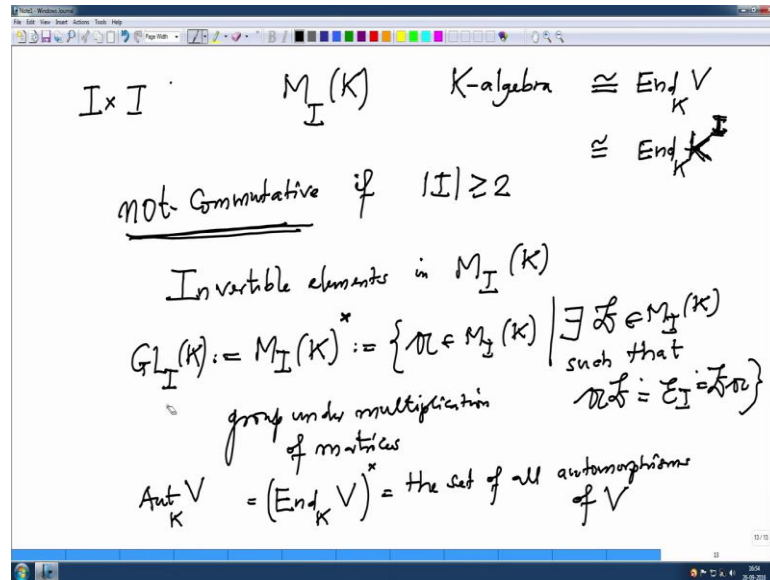 Note1 - Windows Journal
File Edit View Insert Actions Tools Help
Page Width
B I
I×I M_I(K) K-algebra ≅ End_K V
≅ End_K K^I
not Commutative if |I| ≥ 2
Invertible elements in M_I(K)
GL_I(K) := M_I(K)^× := {𝔄 ∈ M_I(K) | ∃ 𝔅 ∈ M_I(K)
such that
𝔄𝔅 = ℰ_I = 𝔅𝔄}
group under multiplication
of matrices
Aut_K V = (End_K V)^× = the set of all automorphisms
of V
13/13
13
16:54